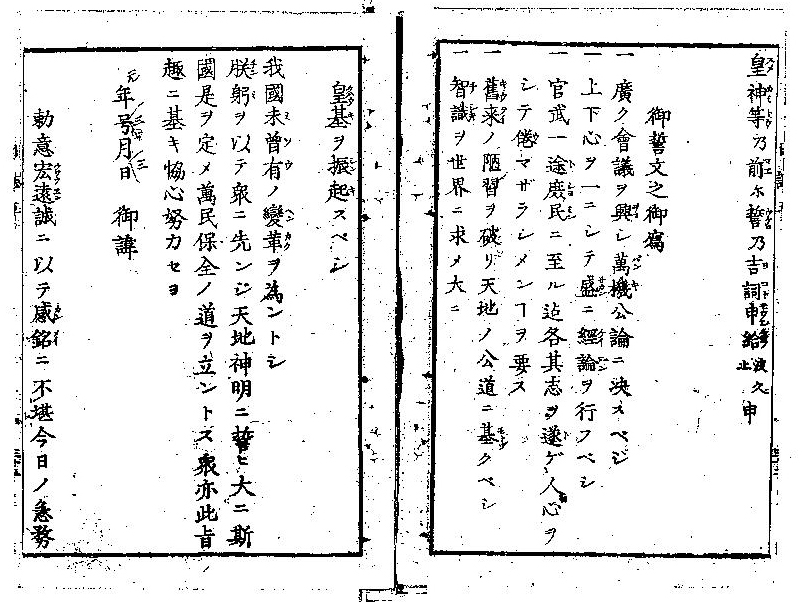 皇神等乃前尓誓乃吉詞申給波久申
御誓文之御寫
一 廣ク會議ヲ興シ萬機公論ニ決スベシ
一 上下心ヲ一ニシテ盛ニ經論ヲ行フベシ
一 官武一途庻民ニ至ル迠各其志ヲ遂ゲ人心ヲ
シテ倦マザラシメンヿヲ要ス
一 舊来ノ陋習ヲ破リ天地ノ公道ニ基クベシ
一 智識ヲ世界ニ求メ大ニ
皇基ヲ振起スベシ
我國未曽有ノ變革ヲ為ントシ
朕躬ヲ以テ衆ニ先ンジ天地神明ニ誓ヒ大ニ斯
國是ヲ定メ萬民保全ノ道ヲ立ントス衆亦此旨
趣ニ基キ恊心努力セヨ
年号月日 御諱
勅意宏遠誠ニ以テ感銘ニ不堪今日ノ急務